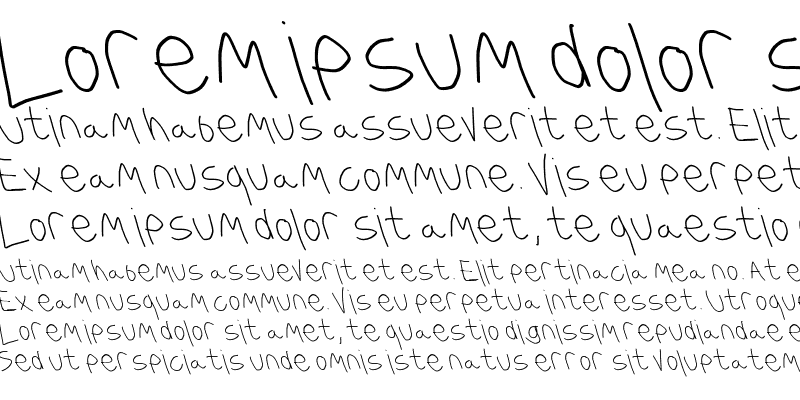 Lorem ipsum dolor s
Utinam habemus assueverit et est. Elit
Ex eam nusquam commune. Vis eu perpet
Lorem ipsum dolor sit amet, te quaestio
Utinam habemus assueverit et est. Elit pertinacia mea no. At e
Ex eam nusquam commune. Vis eu perpetua interesset. Utroque
Lorem ipsum dolor sit amet, te quaestio dignissim repudiandae e
Sed ut perspiciatis unde omnis iste natus error sit voluptatem